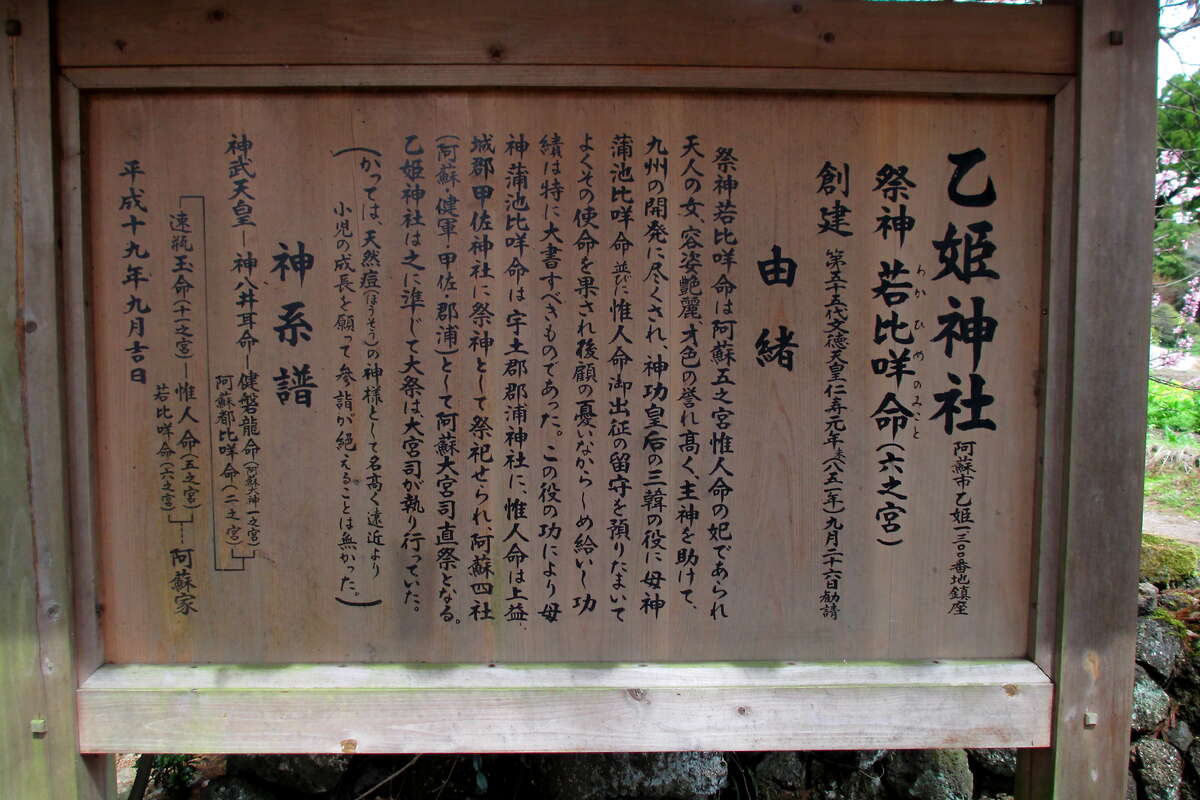 乙姫神社 阿蘇市乙姫一三〇〇番地鎮座
祭神 若比咩命(六之宮)
わかひめのみこと
創建 第五十五代文徳天皇仁寿元年未(八五一年)九月二十六日勧請
由緒
祭神若比咩命は阿蘇五之宮惟人命の妃であられ
天人の女、容姿艶麗才色の誉れ高く、主神を助けて、
九州の開発に尽くされ、神功皇后の三韓の役に母神
蒲池比咩命並びに惟人命御出征の留守を預りたまいて
よくその使命を果され後顧の憂いなからしめ給いし功
績は特に大書すべきものであった。この役の功により母
神蒲池比咩命は宇土郡郡浦神社に、惟人命は上益
城郡甲佐神社に祭神として祭祀せられ、阿蘇四社
(阿蘇・健軍・甲佐・郡浦)として阿蘇大宮司直祭となる。
乙姫神社は之に準じて大祭は、大宮司が執り行っていた。
(かっては、天然痘(ほうそう)の神様として名高く遠近より
小児の成長を願って参詣が絶えることは無かった。)
神系譜
神武天皇―神八井耳命―健磐龍命(阿蘇大神一之宮)
阿蘇都比咩命(二之宮)
速瓶玉命(十一之宮)―惟人命(五之宮)
若比咩命(六之宮)
阿蘇家
平成十九年九月吉日